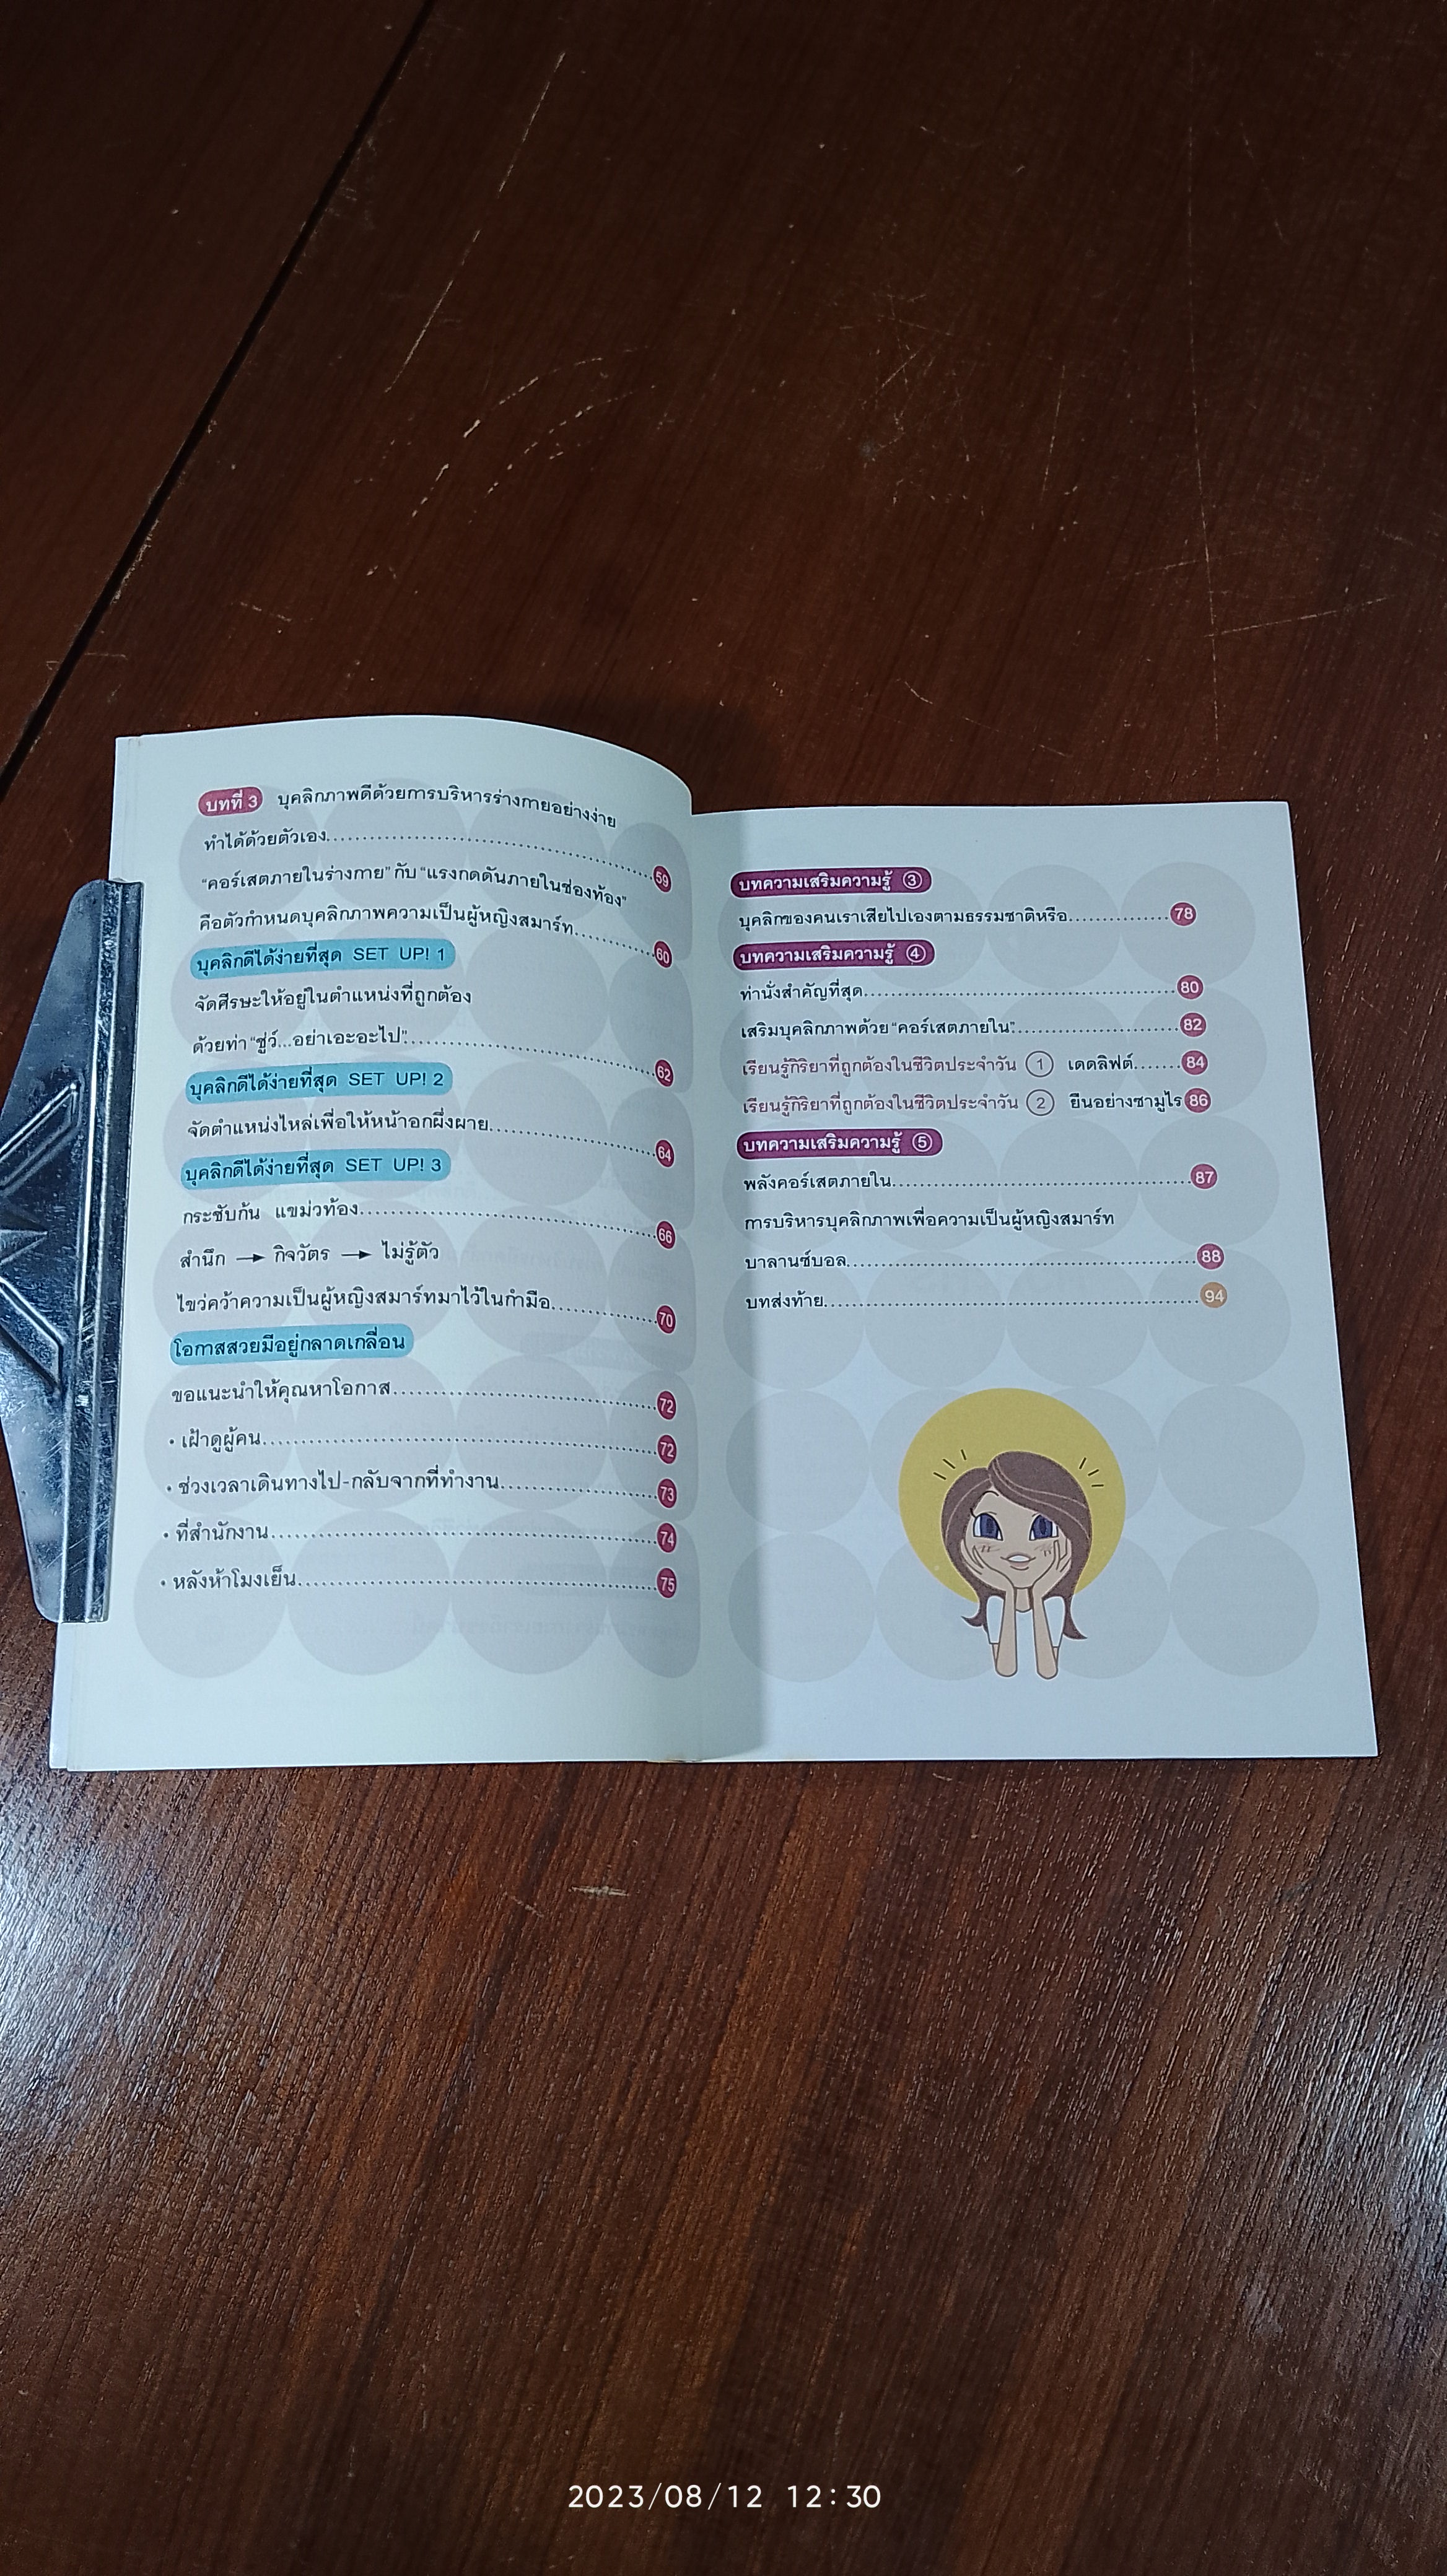 บทที่ 3 บุคลิกภาพดีด้วยการบริหารร่างกายอย่างง่าย
ทำได้ด้วยตัวเอง 59
"คอร์เสตภายในร่างกาย" กับ "แรงกดดันภายในช่องท้อง"
คือตัวกำหนดบุคลิกภาพความเป็นผู้หญิงสมาร์ท 60
บุคลิกดีได้ง่ายที่สุด SET UP! 1
จัดศีรษะให้อยู่ในตำแหน่งที่ถูกต้อง
ด้วยท่า "ชู่ว์...อย่าเอะอะไป" 62
บุคลิกดีได้ง่ายที่สุด SET UP! 2
จัดตำแหน่งไหล่เพื่อให้หน้าอกผึ่งผาย 64
บุคลิกดีได้ง่ายที่สุด SET UP! 3
กระชับก้น แขม่วท้อง 66
สำนึก → กิจวัตร → ไม่รู้ตัว
ไขว่คว้าความเป็นผู้หญิงสมาร์ทมาไว้ในกำมือ 70
โอกาสสวยมีอยู่กลาดเกลื่อน
ขอแนะนำให้คุณหาโอกาส 72
• เฝ้าดูผู้คน 72
• ช่วงเวลาเดินทางไป-กลับจากที่ทำงาน 73
• ที่สำนักงาน 74
• หลังห้าโมงเย็น 75
บทความเสริมความรู้ ③
บุคลิกของคนเราเสียไปเองตามธรรมชาติหรือ 78
บทความเสริมความรู้ ④
ท่านั่งสำคัญที่สุด 80
เสริมบุคลิกภาพด้วย "คอร์เสตภายใน" 82
เรียนรู้กิริยาที่ถูกต้องในชีวิตประจำวัน ① เดดลิฟต์ 84
เรียนรู้กิริยาที่ถูกต้องในชีวิตประจำวัน ② ยืนอย่างซามูไร 86
บทความเสริมความรู้ ⑤
พลังคอร์เสตภายใน 87
การบริหารบุคลิกภาพเพื่อความเป็นผู้หญิงสมาร์ท
บาลานซ์บอล 88
บทส่งท้าย 94
2023/08/12 12:30